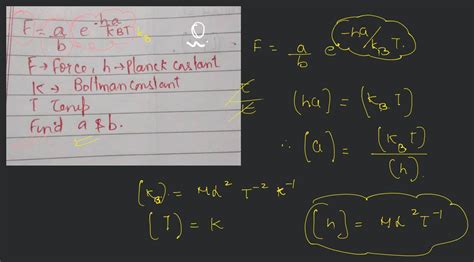 F = a/b e^(-ha/KBT)
Q.
F → Force, h → Planck Constant
K → Boltman Constant
T Temp
Find a & b.
F = a/b e^(-ha/k_B T).
(ha) = (k_B T)
∴ (a) = (k_B T)/(h).
[k_B] = ML² T⁻² K⁻¹
[T] = K
[h] = ML² T⁻¹